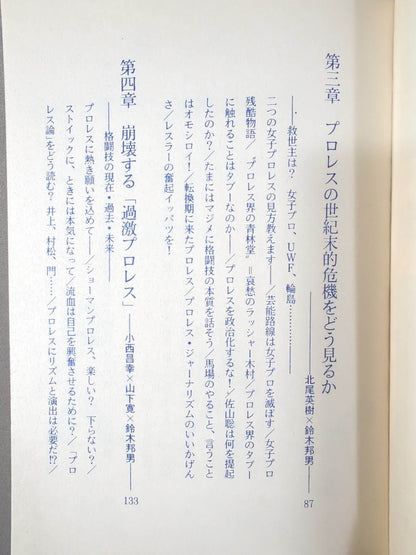 第三章　プロレスの世紀末的危機をどう見るか
北尾英樹×鈴木邦男
――救世主は？　女子プロ、UWF、輪島…………
二つの女子プロレスの見方教えます――／芸能路線は女子プロを滅ぼす／女子プロ
残酷物語／〝プロレス界の青林堂〟＝哀愁のラッシャー木村／プロレス界のタブー
に触れることはタブーなのか――／プロレスを政治化するな！／佐山聡は何を提起
したのか？／たまにはマジメに格闘技の本質を話そう／馬場のやること、言うこと
はオモシロイ！／転換期に来たプロレス／プロレス・ジャーナリズムのいいかげん
さ／レスラーの奮起イッパツを！
87
第四章　崩壊する「過激プロレス」――小西昌幸×山下寛×鈴木邦男
――格闘技の現在・過去・未来――
プロレスに熱き願いを込めて――／ショーマンプロレス、楽しい？　下らない？／
ストイックに、ときには本気になって／流血は自己を興奮させるために？／「プロ
レス論」をどう読む？　井上、村松、門……／プロレスにリズムと演出は必要だ!?／
133